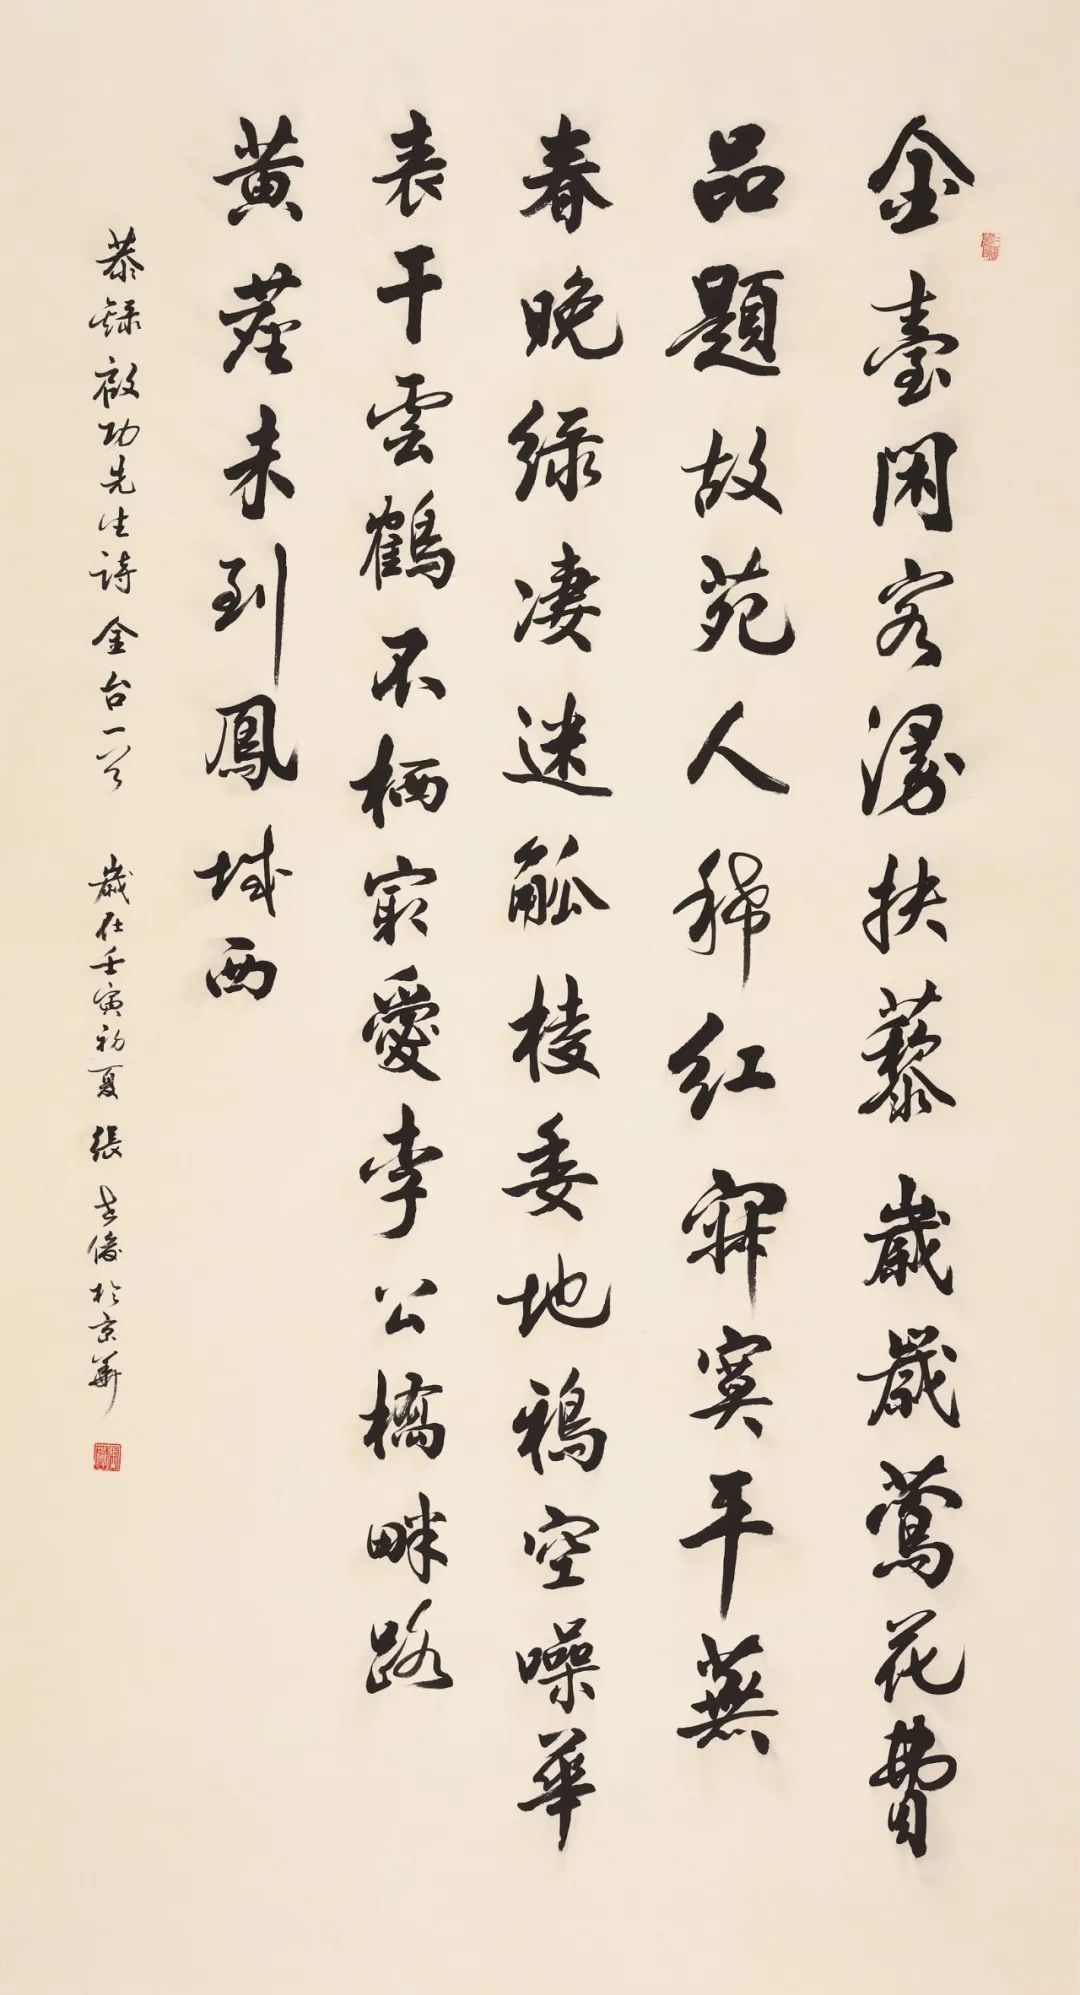 金臺閑客漫扶藜歲歲鶯花費
品題故苑人稀紅寂寞平蕪
春晚綠凄迷觚棱委地鴉空噪華
表干雲鶴不栖最愛李公橋畔路
黃塵未到鳳城西
恭錄啟功先生詩金台一首 歲在壬寅初夏張俊於京華